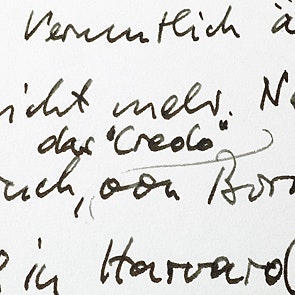 Vermutlich ä
nicht mehr. N
das "Credo"
uch, von Born
in Harvard(